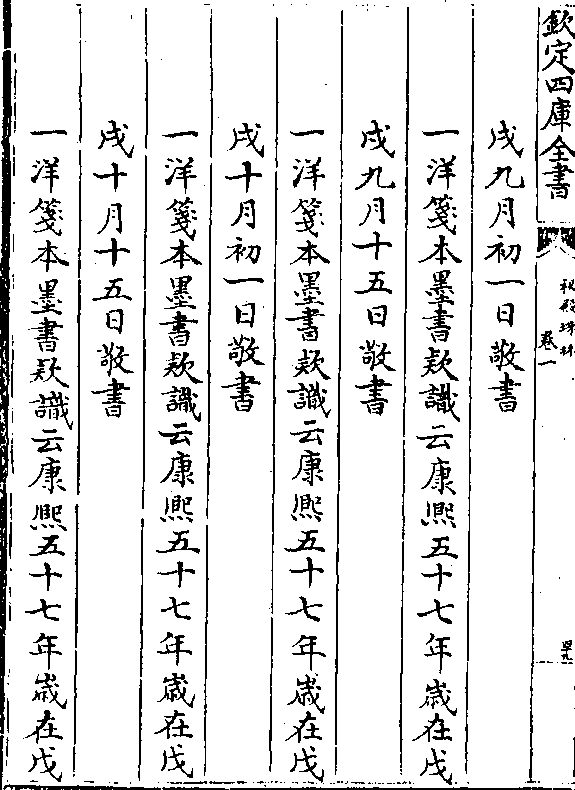 欽定四庫全書
秘殿珠林
卷一
四十九
戌九月初一日敬書
一洋箋本墨書欵識云康熙五十七年歲在戊
戌九月十五日敬書
一洋箋本墨書欵識云康熙五十七年歲在戊
戌十月初一日敬書
一洋箋本墨書欵識云康熙五十七年歲在戊
戌十月十五日敬書
一洋箋本墨書欵識云康熙五十七年歲在戊